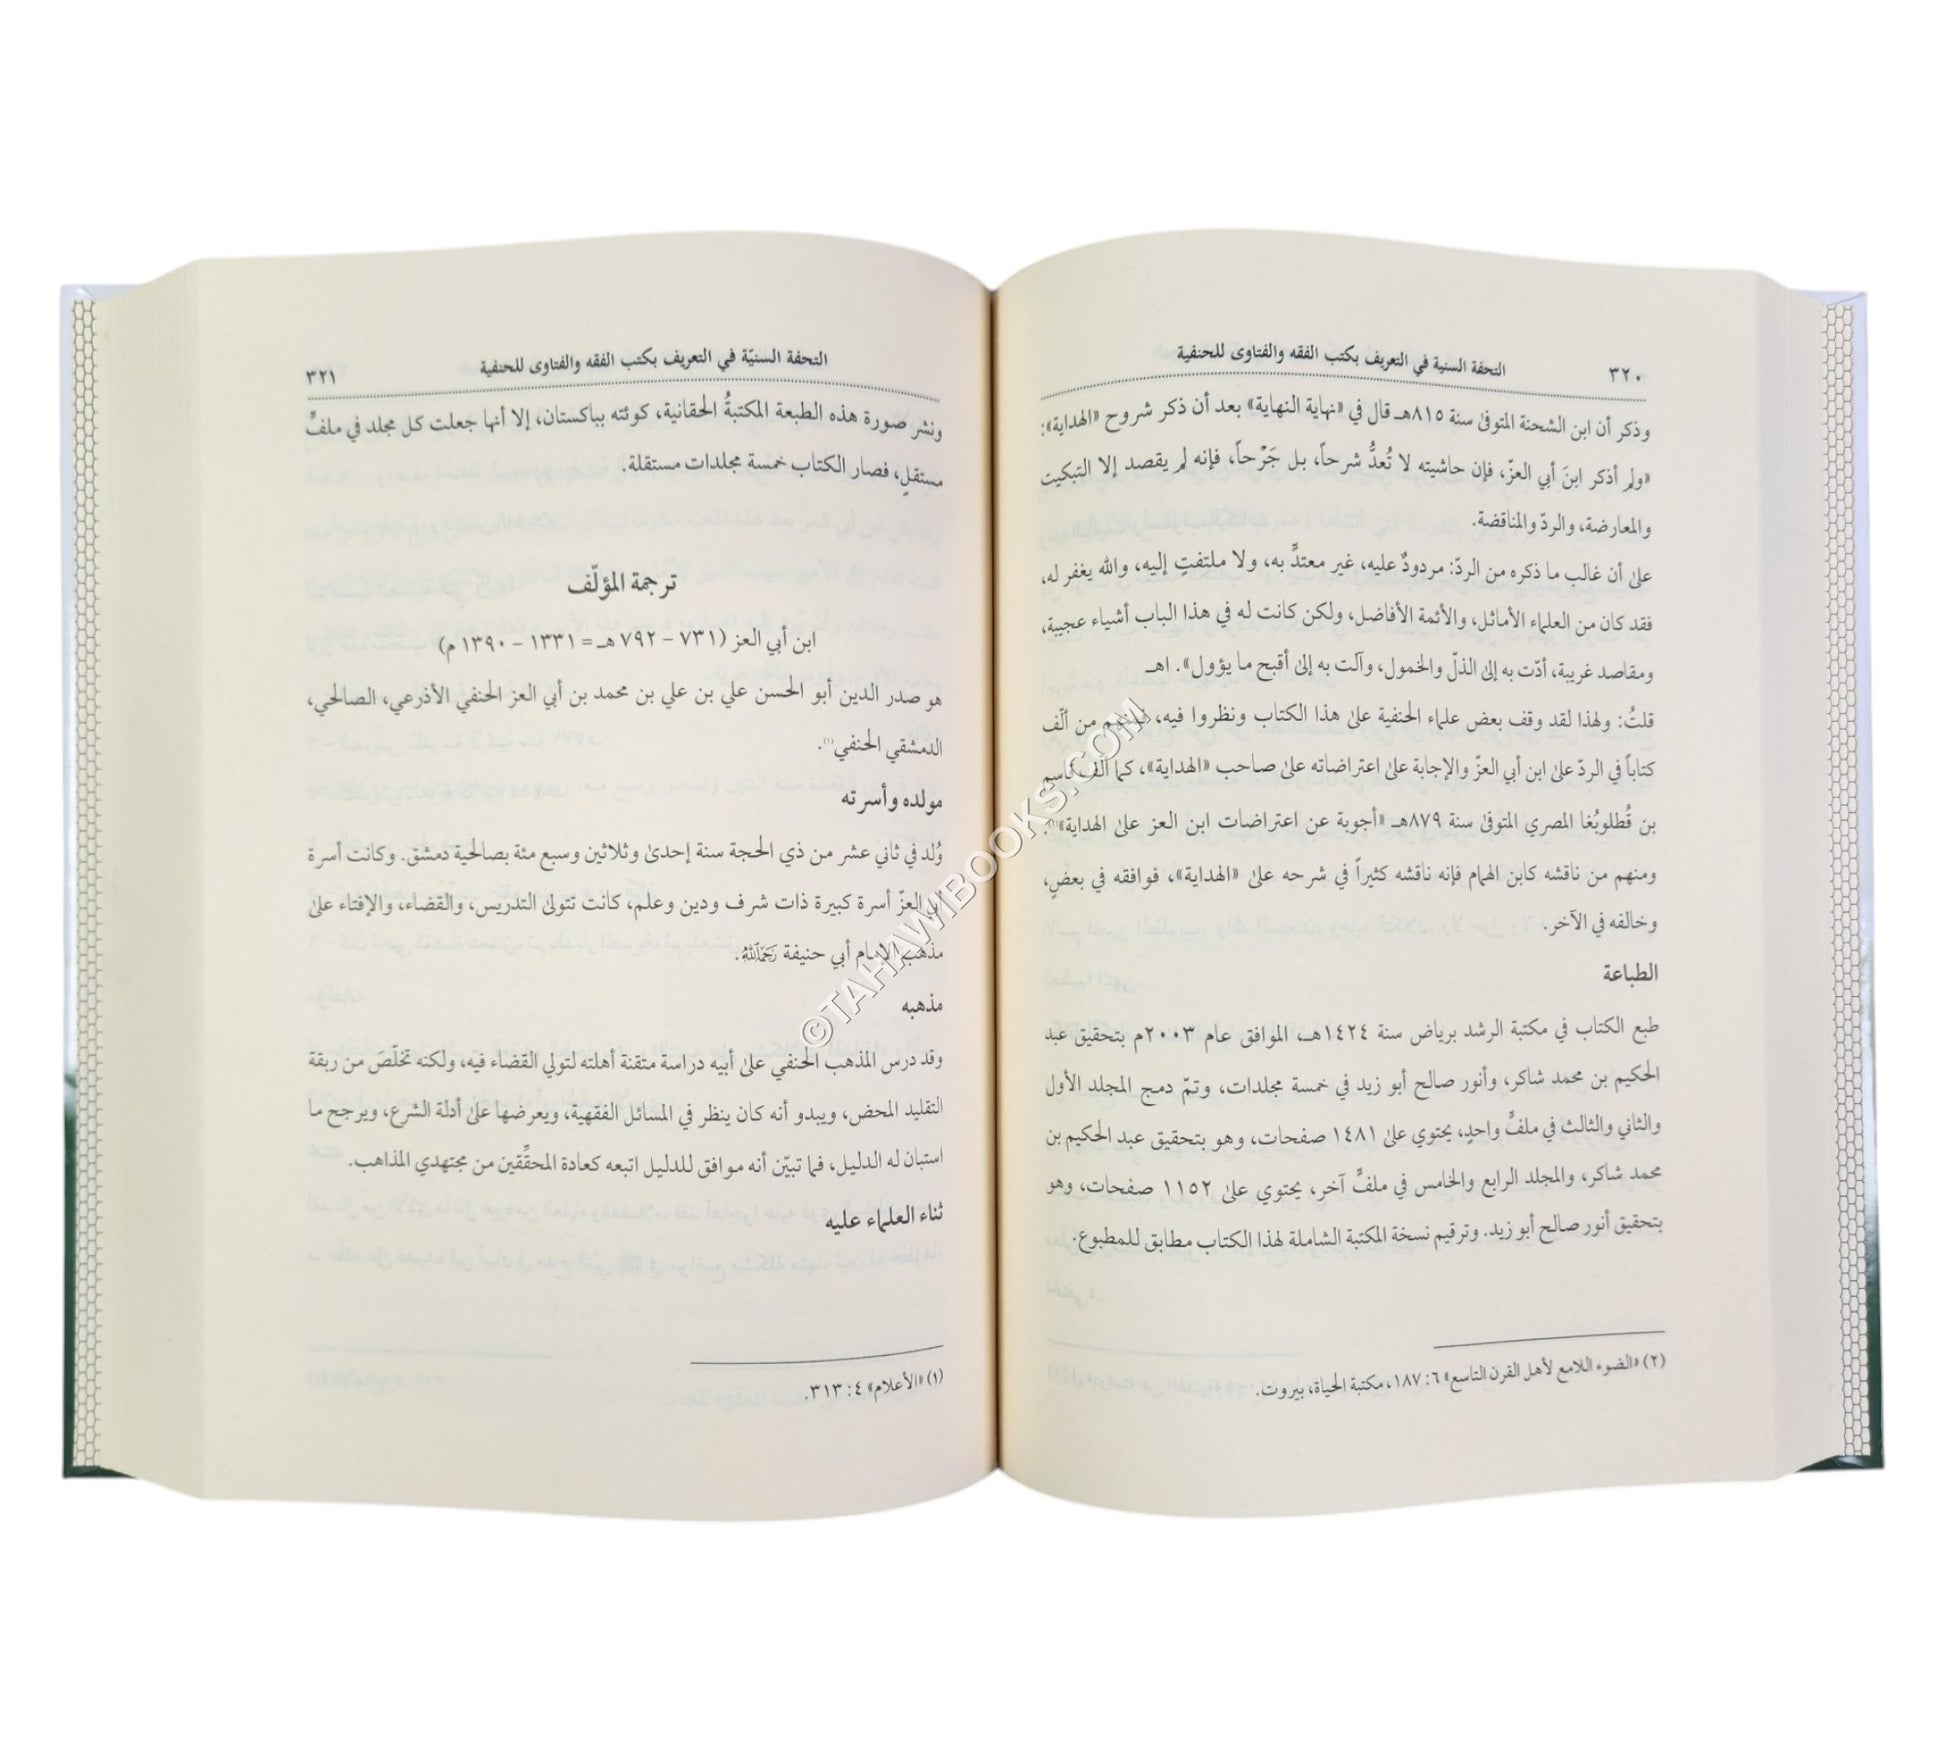 ٣٢٠ التحفة السنية في التعريف بكتب الفقه والفتاوى للحنفية
وذكر أن ابن الشحنة المتوفىٰ سنة ٨١٥هـ قال في «نهاية النهاية» بعد أن ذكر شروح «الهداية»:
«ولم أذكر ابنَ أبي العزّ، فإن حاشيته لا تُعدُّ شرحاً، بل جَرْحاً، فإنه لم يقصد إلا التبكيت
والمعارضة، والردّ والمناقضة.
علىٰ أن غالب ما ذكره من الردّ: مردودٌ عليه، غير معتدٍّ به، ولا ملتفتٍ إليه، والله يغفر له،
فقد كان من العلماء الأماثل، والأئمة الأفاضل، ولكن كانت له في هذا الباب أشياء عجيبة،
ومقاصد غريبة، أدّت به إلىٰ الذلّ والخمول، وآلت به إلىٰ أقبح ما يؤول». اهـ
قلتُ: ولهذا لقد وقف بعض علماء الحنفية علىٰ هذا الكتاب ونظروا فيه، فمنهم من ألّف
كتاباً في الردّ علىٰ ابن أبي العزّ والإجابة علىٰ اعتراضاته علىٰ صاحب «الهداية»، كما ألف قاسم
بن قُطلوبُغا المصري المتوفىٰ سنة ٨٧٩هـ «أجوبة عن اعتراضات ابن العز علىٰ الهداية»
ومنهم من ناقشه كابن الهمام فإنه ناقشه كثيراً في شرحه علىٰ «الهداية»، فوافقه في بعضٍ،
وخالفه في الآخر.
الطباعة
طبع الكتاب في مكتبة الرشد برياض سنة ١٤٢٤هـ، الموافق عام ٢٠٠٣م بتحقيق عبد
الحكيم بن محمد شاكر، وأنور صالح أبو زيد في خمسة مجلدات، وتمّ دمج المجلد الأول
والثاني والثالث في ملفٍّ واحدٍ، يحتوي علىٰ ١٤٨١ صفحات، وهو بتحقيق عبد الحكيم بن
محمد شاكر، والمجلد الرابع والخامس في ملفٍّ آخر، يحتوي علىٰ ١١٥٢ صفحات، وهو
بتحقيق أنور صالح أبو زيد. وترقيم نسخة المكتبة الشاملة لهذا الكتاب مطابق للمطبوع.
(٢) «الضوء اللامع لأهل القرن التاسع» ٦: ١٨٧، مكتبة الحياة، بيروت.
التحفة السنيّة في التعريف بكتب الفقه والفتاوى للحنفية ٣٢١
ونشر صورة هذه الطبعة المكتبةُ الحقانية، كوئته بباكستان، إلا أنها جعلت كل مجلد في ملفٍّ
مستقلٍ، فصار الكتاب خمسة مجلدات مستقلة.
ترجمة المؤلّف
ابن أبي العز (٧٣١ - ٧٩٢ هـ = ١٣٣١ - ١٣٩٠ م)
هو صدر الدين أبو الحسن علي بن علي بن محمد بن أبي العز الحنفي الأذرعي، الصالحي،
الدمشقي الحنفي(١).
مولده وأسرته
وُلد في ثاني عشر من ذي الحجة سنة إحدىٰ وثلاثين وسبع مئة بصالحية دمشق. وكانت أسرة
أبي العزّ أسرة كبيرة ذات شرف ودين وعلم، كانت تتولىٰ التدريس، والقضاء، والإفتاء علىٰ
مذهب الإمام أبي حنيفة رَحِمَهُ اللهُ.
مذهبه
وقد درس المذهب الحنفي علىٰ أبيه دراسة متقنة أهلته لتولي القضاء فيه، ولكنه تخلّصَ من ربقة
التقليد المحض، ويبدو أنه كان ينظر في المسائل الفقهية، ويعرضها علىٰ أدلة الشرع، ويرجح ما
استبان له الدليل، فما تبيّن أنه موافق للدليل اتبعه كعادة المحقِّقين من مجتهدي المذاهب.
ثناء العلماء عليه
(١) «الأعلام» ٤: ٣١٣.
©TAHAWIBOOKS.COM